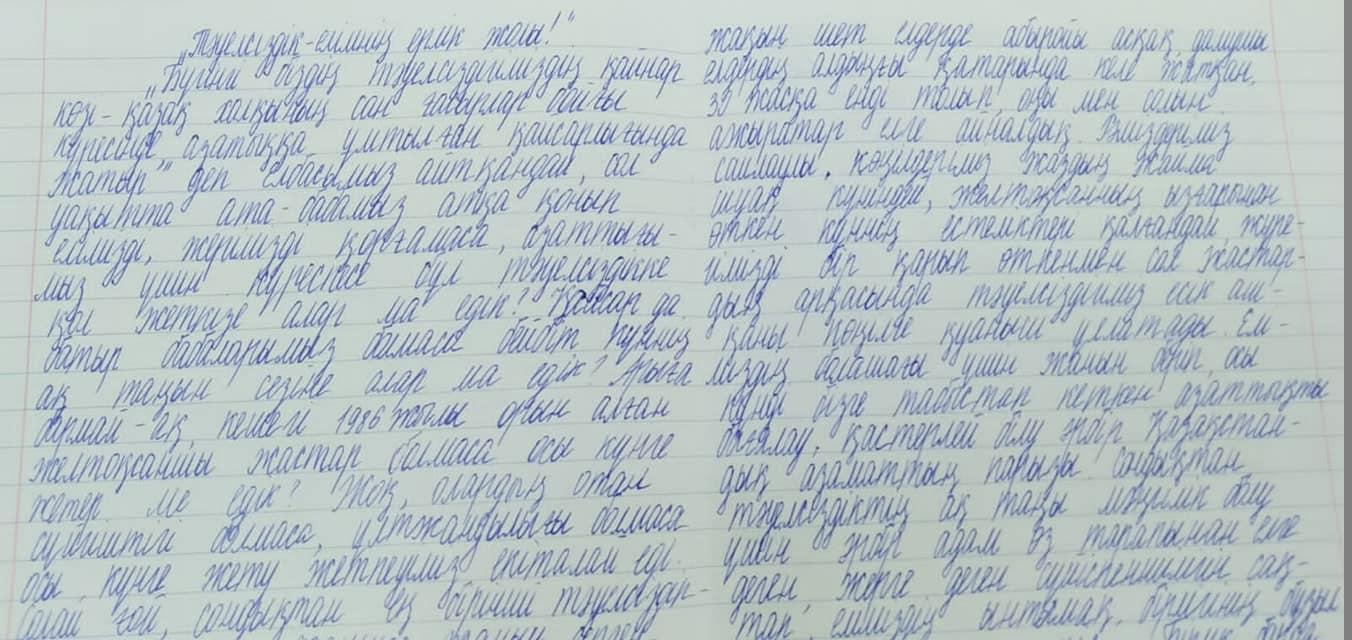 „Тәуелсіздік-елімнің ерлік жолы!"
„Бүгінгі біздің тәуелсіздігіміздің қайнар
көзі - қазақ халқының сан ғасырлар бойғы
күресінде, азаттыққа ұмтылған қайсарлығында
жатыр" деп Елбасымыз айтқандай, сол
уақытта ата-бабамыз атқа қонып
елімізді, жерімізді қорғамаса, азаттығы-
мыз үшін күреспесе бұл тәуелсіздікке
қол жеткізе алар ма едік? да
батыр бабаларымыз болмаса бейбіт күннің
ақ таңын сезіне алар ма едік? Арыға
бармай-ақ, кешегі 1986 жылы орын алған
желтоқсаншы жастар болмаса осы күнге
жетер ме едік? Жоқ, олардың отан
сүйгіштігі болмаса, ұлтжандылығы болмаса
осы күнге жету жетпеуіміз екіталай еді.
солай ғой, сондықтан ең бірінші
жақын шет елдерде абыройы асқақ, дамушы
елдердің алдыңғы қатарында келе жатқан,
30 жасқа енді толып, оңы мен солын
ажыратар елге айналдық.
саймаулы, көңілдеріміз жаздың жайма
шуақ күніндей, желтоқсанның ызғарымен
өткен күннің естеліктей қалғандай, жүре-
гімізді бір қарып өткенмен сол жастар-
дың арқасында тәуелсіздігіміз есік аш-
қаны көңілге қуаныш ұялатады. Ел-
іміздің болашағы үшін жанын беріп, осы
күнді бізге табыстап кеткен азаттықты
бағалау, қастерлей білу әрбір Қазақстан-
дық азаматтың парызы сондықтан
тәуелсіздіктің ақ таңы мәңгілік болу
үшін әрбір адам өз тарапынан елге
деген, жерге деген сүйіспеншілігін сақ-
тап, еліміздің ынтымақ, бірлігінің